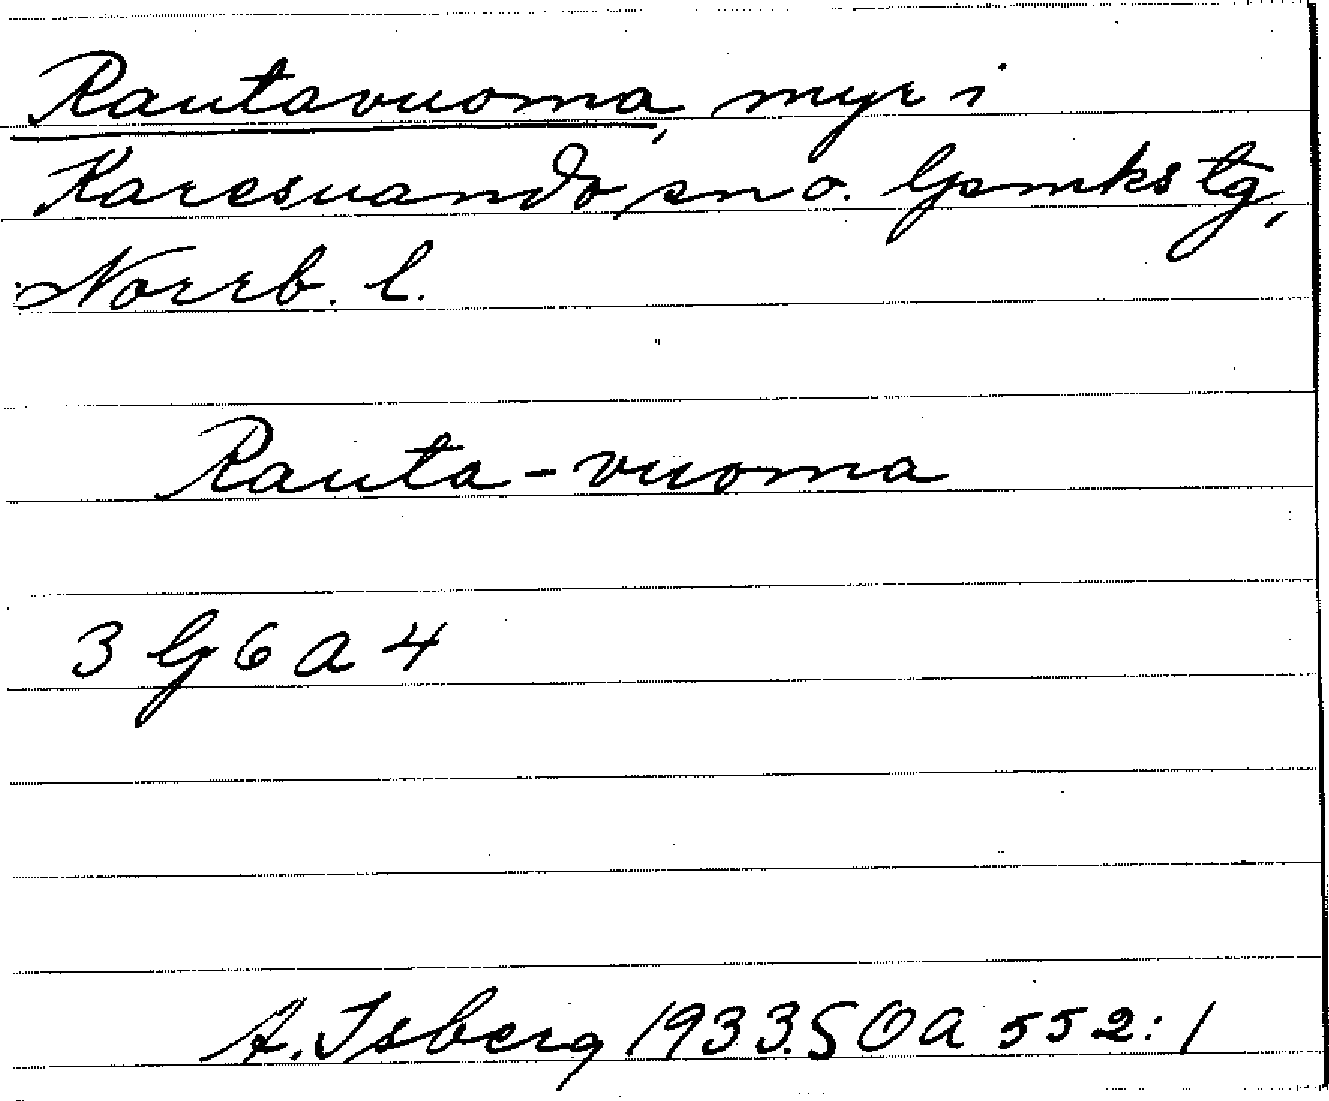 Rautavuoma, myr i
Karesuando sn o. Gpmkstg,
Norrb. l.
Rauta-vuoma
3 G 6 a 4
A. Isberg 1933. SOA 552:1